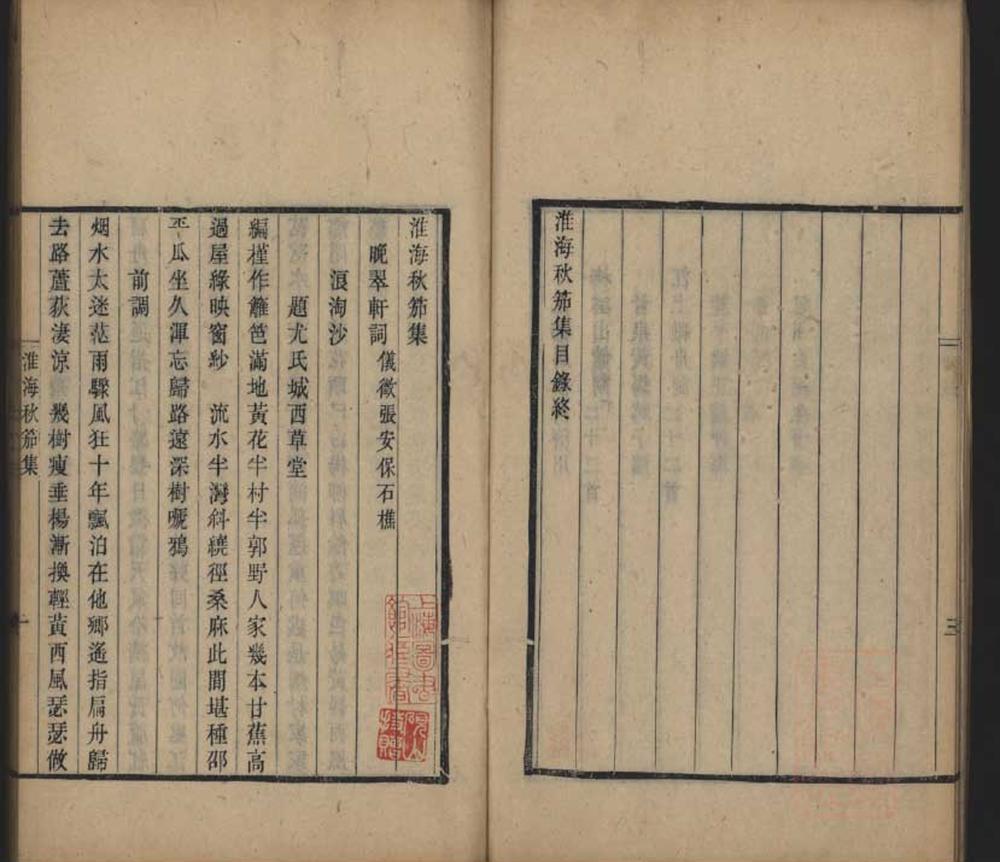 淮海秋笳集目錄終
三
淮海秋笳集
晚翠軒詞 儀徵張安保石樵
浪淘沙
題尤氏城西草堂
編槿作籬笆滿地黃花半村半郭野人家幾本甘蕉高
過屋綠映窗紗 流水半灣斜繞徑桑麻此間堪種邵
平瓜坐久渾忘歸路遠深樹嗁鴉
前調
烟水太迷茫雨驟風狂十年飄泊在他鄉遙指扁舟歸
去路蘆荻淒涼 幾樹瘦垂楊漸換輕黃西風瑟瑟做
淮海秋笳集
一
上海圖書館藏書